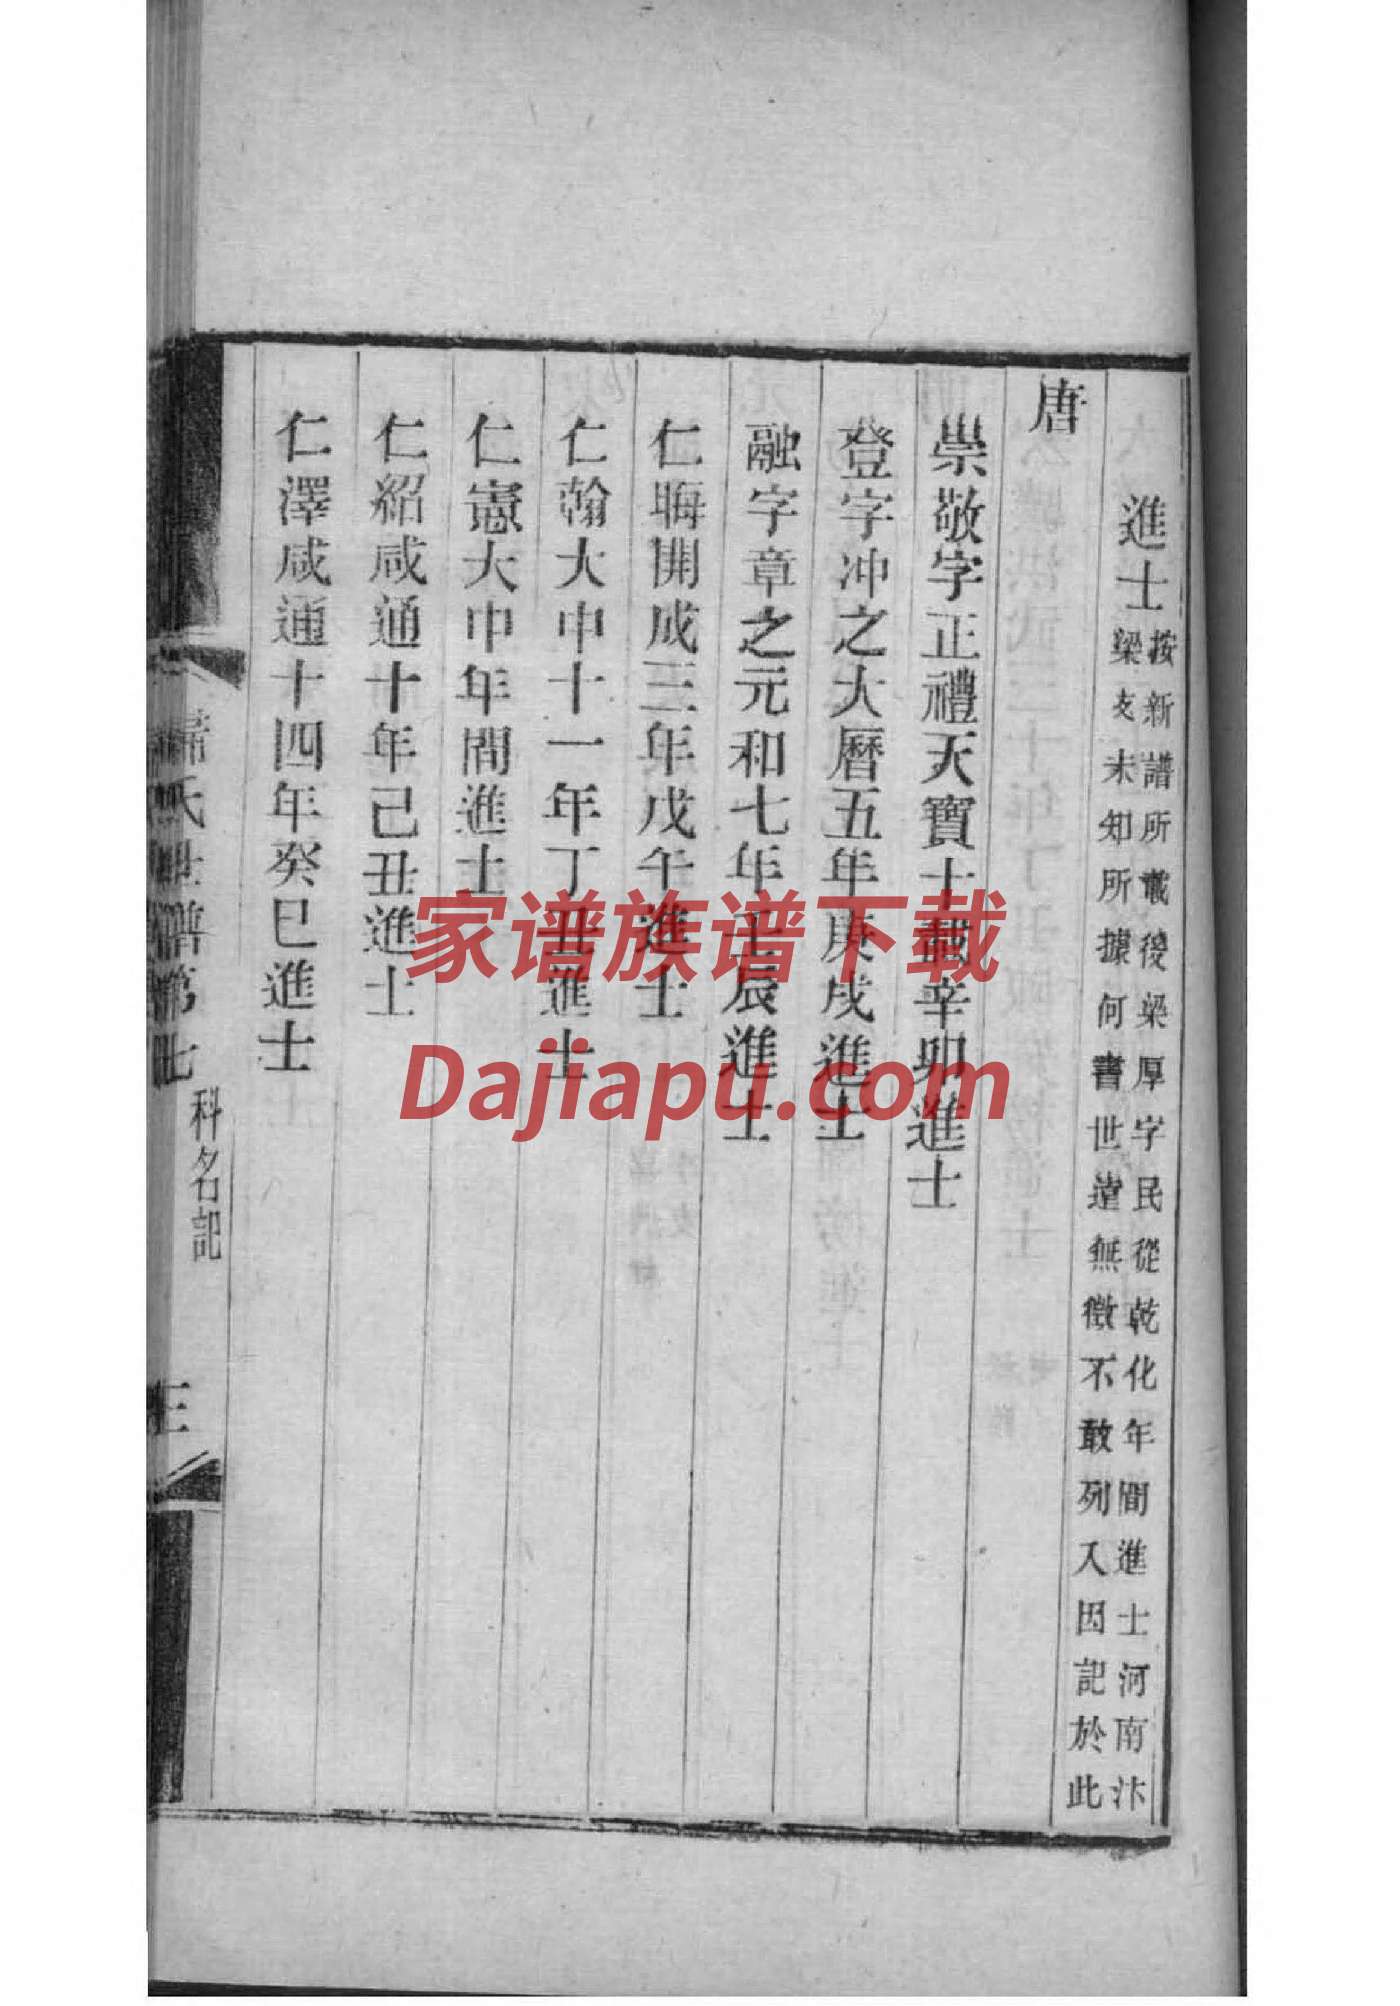 進士 按新譜所載後梁厚字民從乾化年間進士河南汴
梁支未知所據何書世遠無徵不敢列入因記於此
唐
崇敬字正禮天寶十載辛卯進士
登字冲之大曆五年庚戌進士
融字章之元和七年壬辰進士
仁晦開成三年戊午進士
仁翰大中十一年丁丑進士
仁憲大中年間進士
仁紹咸通十年己丑進士
仁澤咸通十四年癸巳進士
氏世譜第七
科名記
三
家谱族谱下载
Dajiapu.com